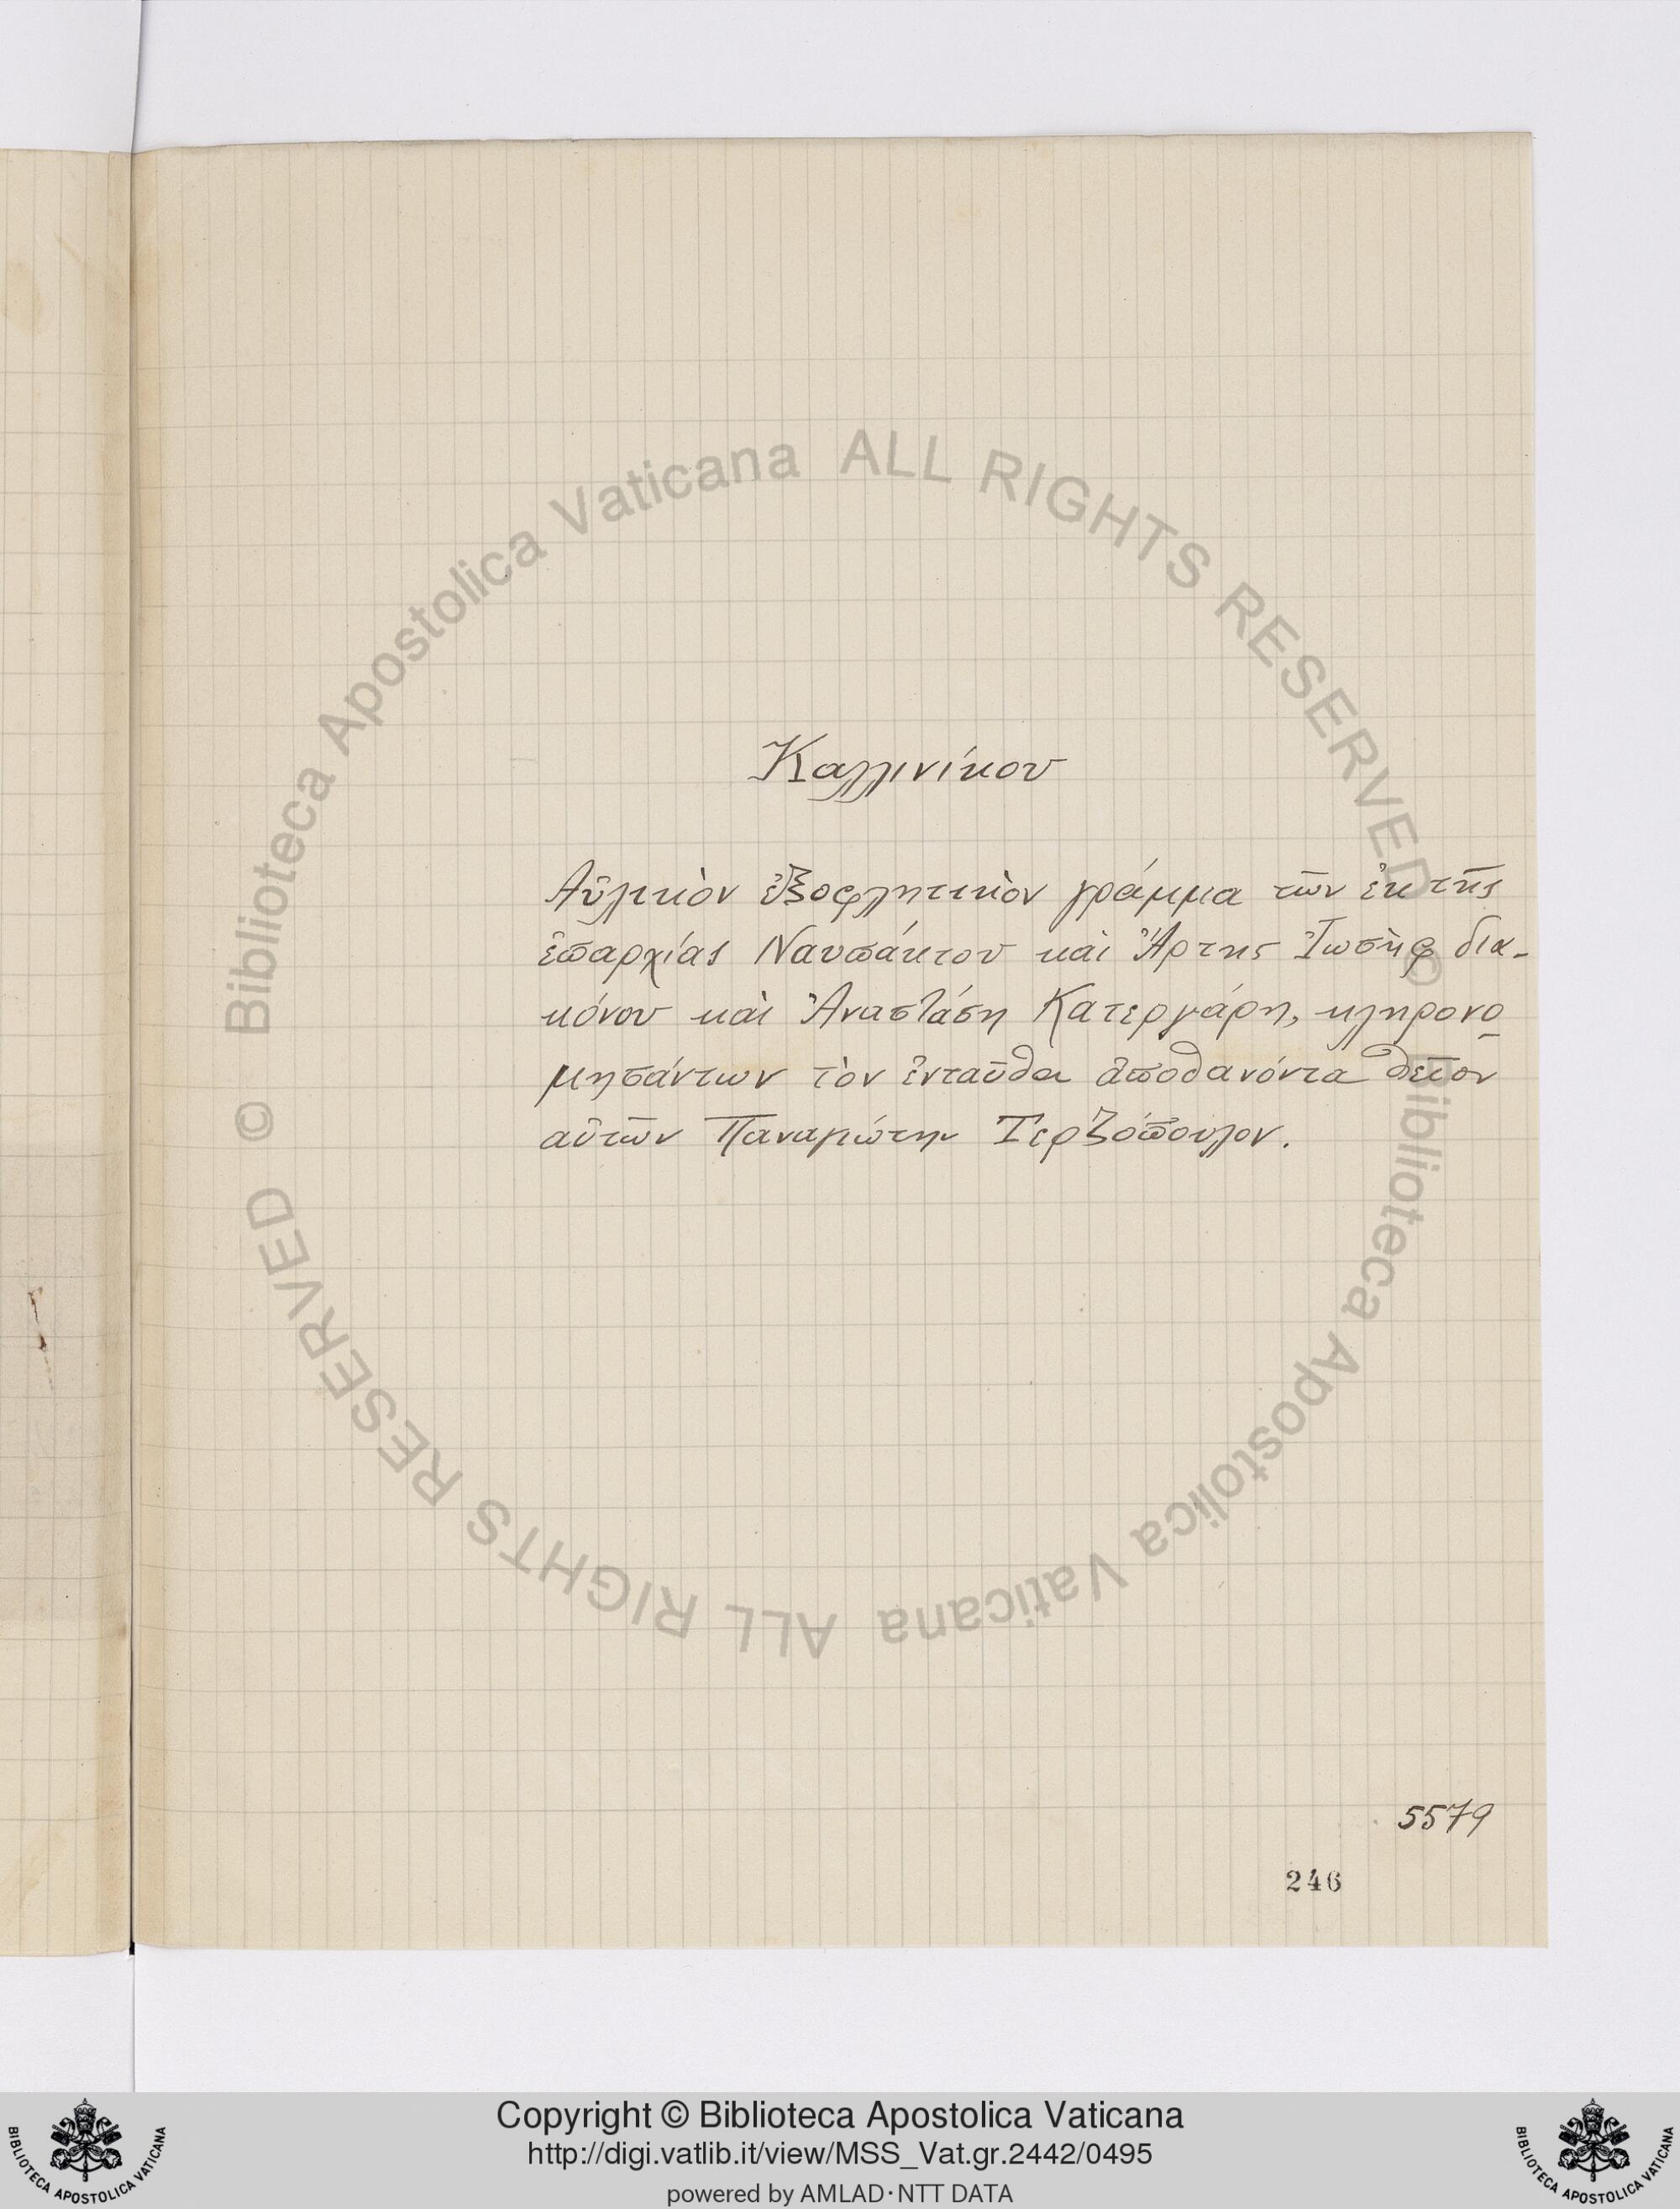 Καλλινίκου
Αὐλικὸν ἐξοφλητικὸν γράμμα τῶν ἐκ τῆς
ἐπαρχίας Ναυπάκτου καὶ Ἄρτης Ἰωσὴφ δια-
κόνου καὶ Ἀναστάση Κατεργάρη, κληρονο
μησάντων τὸν ἐνταῦθα ἀποθανόντα θεῖον
αὐτῶν Παναγιώτην Τερζόπουλον.
5579
246
© Biblioteca Apostolica Vaticana ALL RIGHTS RESERVED
© Biblioteca Apostolica Vaticana ALL RIGHTS RESERVED
Copyright © Biblioteca Apostolica Vaticana
http://digi.vatlib.it/view/MSS_Vat.gr.2442/0495
powered by AMLAD·NTT DATA
BIBLIOTECA APOSTOLICA VATICANA
BIBLIOTECA APOSTOLICA VATICANA